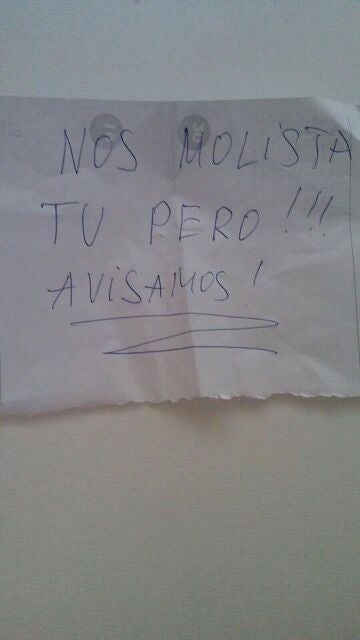 NOS MOLISTA
TU PERO!!!
AVISAMOS!